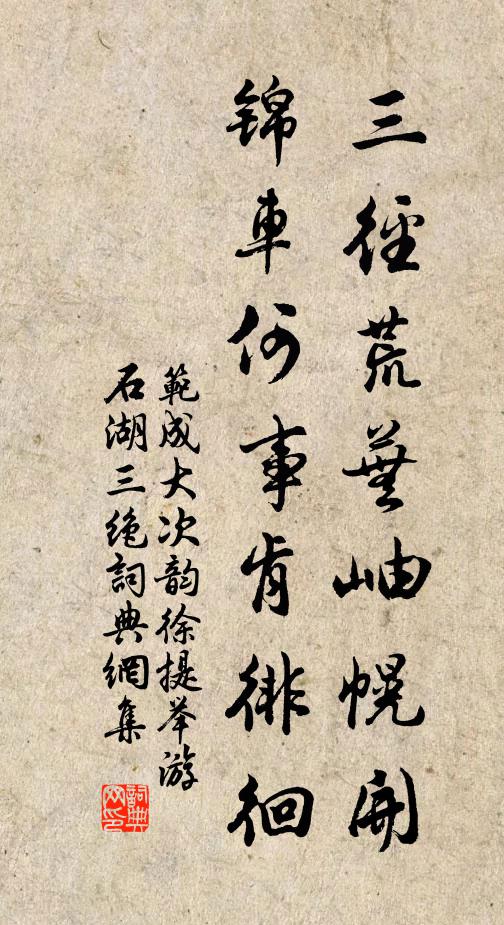 三徑荒蕪岫幌開
錦車何事肯徘徊
範成大次韵徐提举游
石湖三绝詞典網集
詞典网印